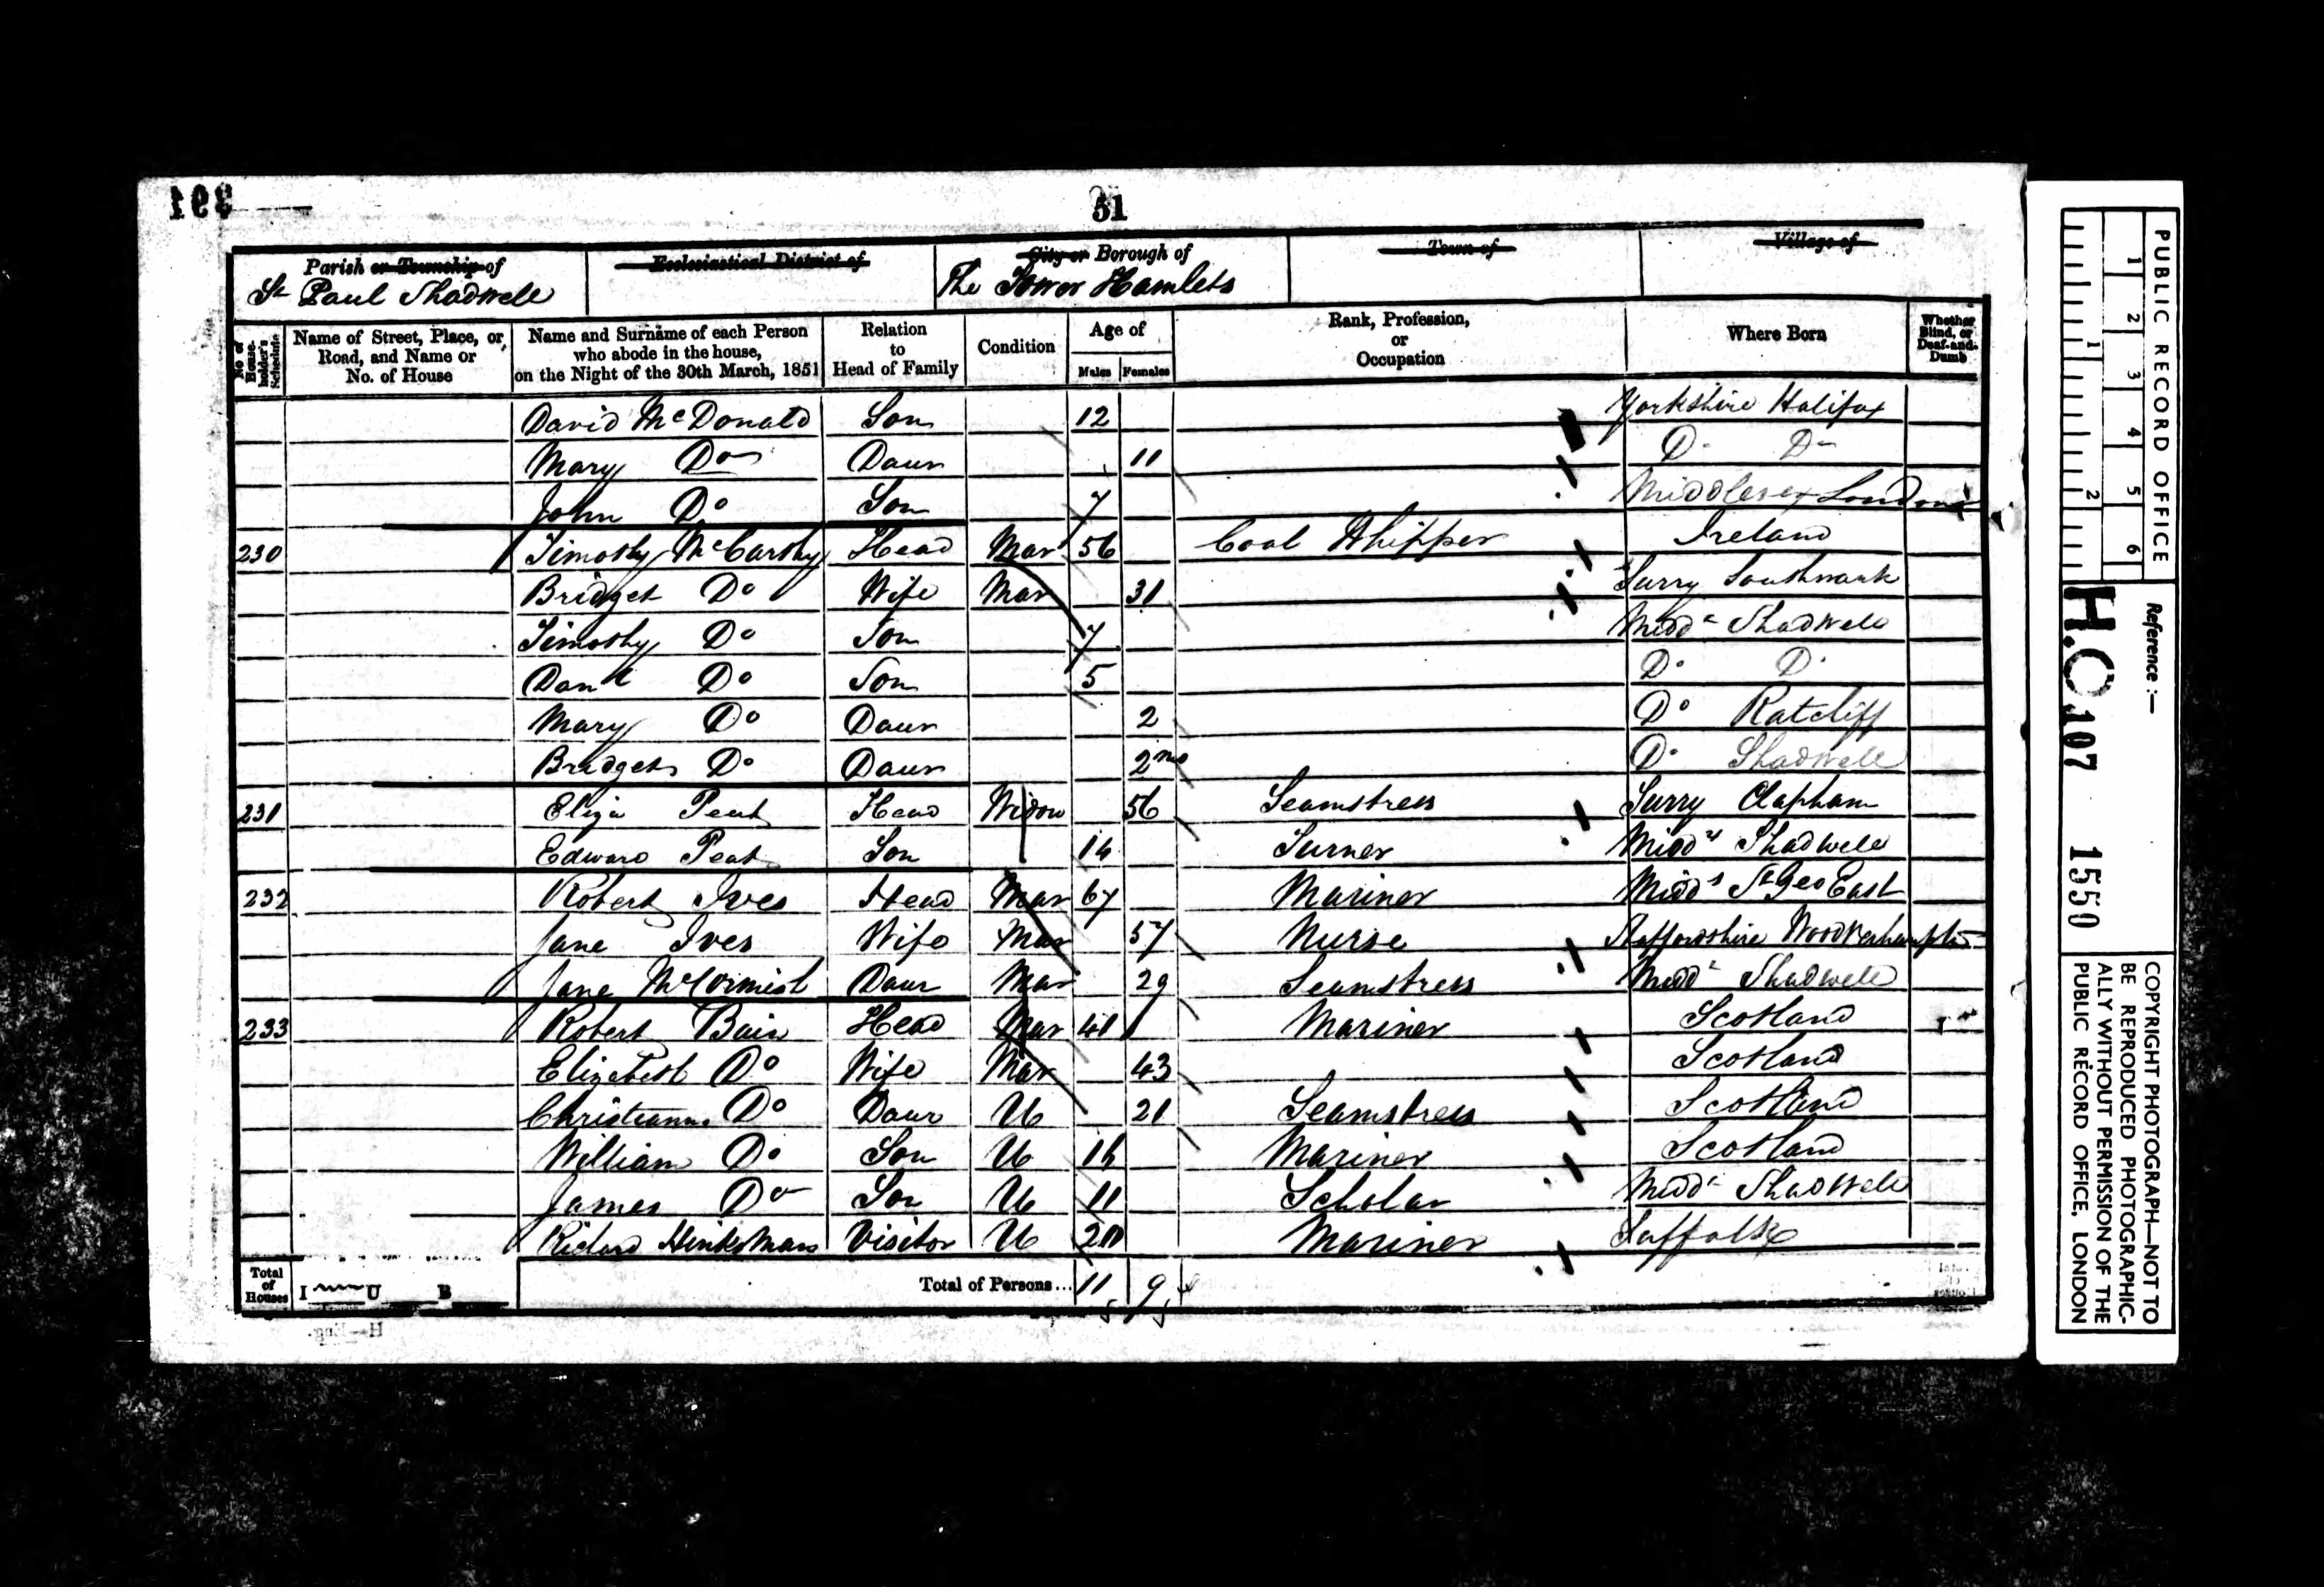 391
51
Parish or Township of
St Paul Shadwell
Ecclesiastical District of
City or Borough of
The Tower Hamlets
Town of
Village of
No of House-holder's Schedule
Name of Street, Place, or Road, and Name or No. of House
Name and Surname of each Person who abode in the house, on the Night of the 30th March, 1851
Relation to Head of Family
Condition
Age of
Males Females
Rank, Profession, or Occupation
Where Born
Whether Blind, or Deaf-and-Dumb
David McDonald Son 12 Yorkshire Halifax
Mary Do Daur 11 Do Do
John Do Son 7 Middlesex London
230 Timothy McCarthy Head Mar 56 Coal Whipper Ireland
Bridget Do Wife Mar 31 Surry Southwark
Timothy Do Son 7 Middx Shadwell
Danl Do Son 5 Do Do
Mary Do Daur 2 Do Ratcliff
Bridget Do Daur 2 mo Do Shadwell
231 Eliza Peat Head Widow 56 Seamstress Surry Clapham
Edward Peat Son 14 Turner Middx Shadwell
232 Robert Ives Head Mar 67 Mariner Middx St Geo East
Jane Ives Wife Mar 57 Nurse Staffordshire
Jane McCormick Daur Mar 29 Seamstress Middx Shadwell
233 Robert Bain Head Mar 41 Mariner Scotland
Elizabeth Do Wife Mar 43 Scotland
Christiann Do Daur U 21 Seamstress Scotland
William Do Son U 16 Mariner Scotland
James Do Son U 11 Scholar Middx Shadwell
Richard Visitor U Mariner Suffolk
Total of Houses I U B
Total of Persons... 11 9
H—Eng.
PUBLIC RECORD OFFICE
1 2 3 4 5 6
1 2
Reference:—
H.O. 107 1550
COPYRIGHT PHOTOGRAPH—NOT TO
BE REPRODUCED PHOTOGRAPHIC-
ALLY WITHOUT PERMISSION OF THE
PUBLIC RECORD OFFICE, LONDON